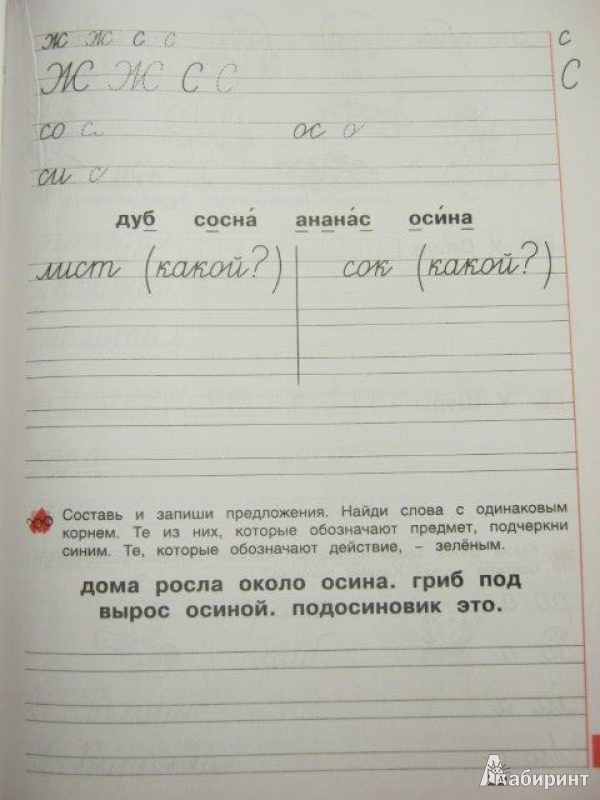 ж ж с с с
Ж Ж С С С
со с ос о
си с
дуб сосна́ анана́с оси́на
лист (какой?) сок (какой?)
Составь и запиши предложения. Найди слова с одинаковым
корнем. Те из них, которые обозначают предмет, подчеркни
синим. Те, которые обозначают действие, – зелёным.
дома росла около осина. гриб под
вырос осиной. подосиновик это.
Лабиринт